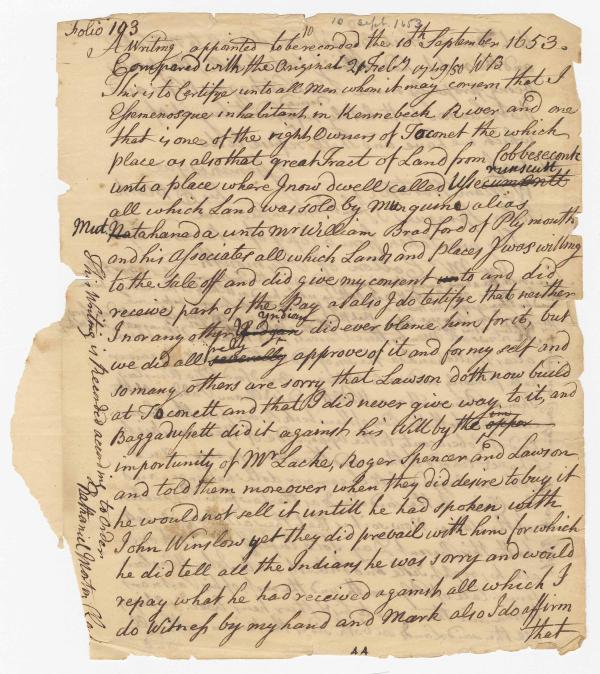 Folio 193
10 Sept. 1653
A Writing appointed to be recorded the 10th September 1653.
10
Compared with the Original 2 Feb'y 1749/50
This is to Certifye unto all Men whom it may consern that I
Essemenosque inhabitant in Kennebeck River and one
that is one of the right Owners of Toconet the which
place as also that great Tract of Land from Cobbeseconte
runscutt
unto a place where I now dwell called
all which Land was sold by Munquine alias
Mut. Natahanada unto Mr William Bradford of Plymouth
and his Associates all which Lands and places I was willing
to the Sale off and did give my consent unto and did
receive part of the Pay as also I do testifye that neither
Yndian
I nor any other Yndian did ever blame him for it, but
really
we did all severally approve of it and for my self and
so many others are sorry that Lawson doth now build
at Toconett and that I did never give way to it, and
im
Baggadusett did it against his Will by the oppor
importunity of Mr Lacke, Roger Spencer and Lawson
and told them moreover when they did desire to buy it
he would not sell it untill he had spoken with
John Winslow yet they did prevail with him for which
he did tell all the Indians he was sorry and would
repay what he had received against all which I
do Witness by my hand and Mark also I do affirm
that
This Writing is Recorded according to Order
Nathaniel Morton